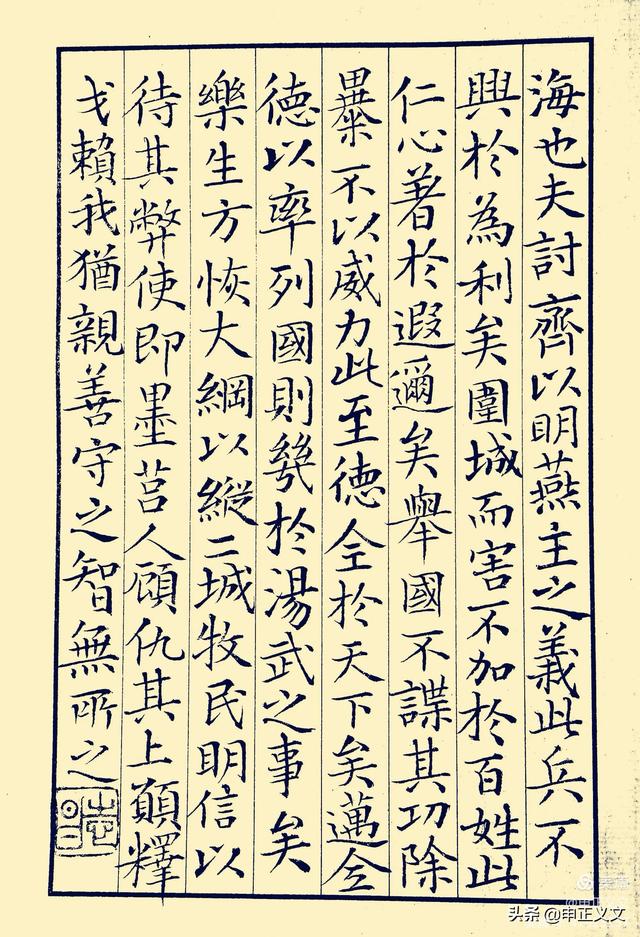 海也夫討齊以明燕主之義此兵不
興於為利矣圍城而害不加於百姓此
仁心著於遐邇矣舉國不謀其功除
暴不以威力此至德全於天下矣邁全
德以率列國則幾於湯武之事矣
樂生方恢大綱以縱二城牧民明信以
待其弊使即墨莒人顧仇其上願釋
戈賴我猶親善守之智無所之
头条 @申正义文